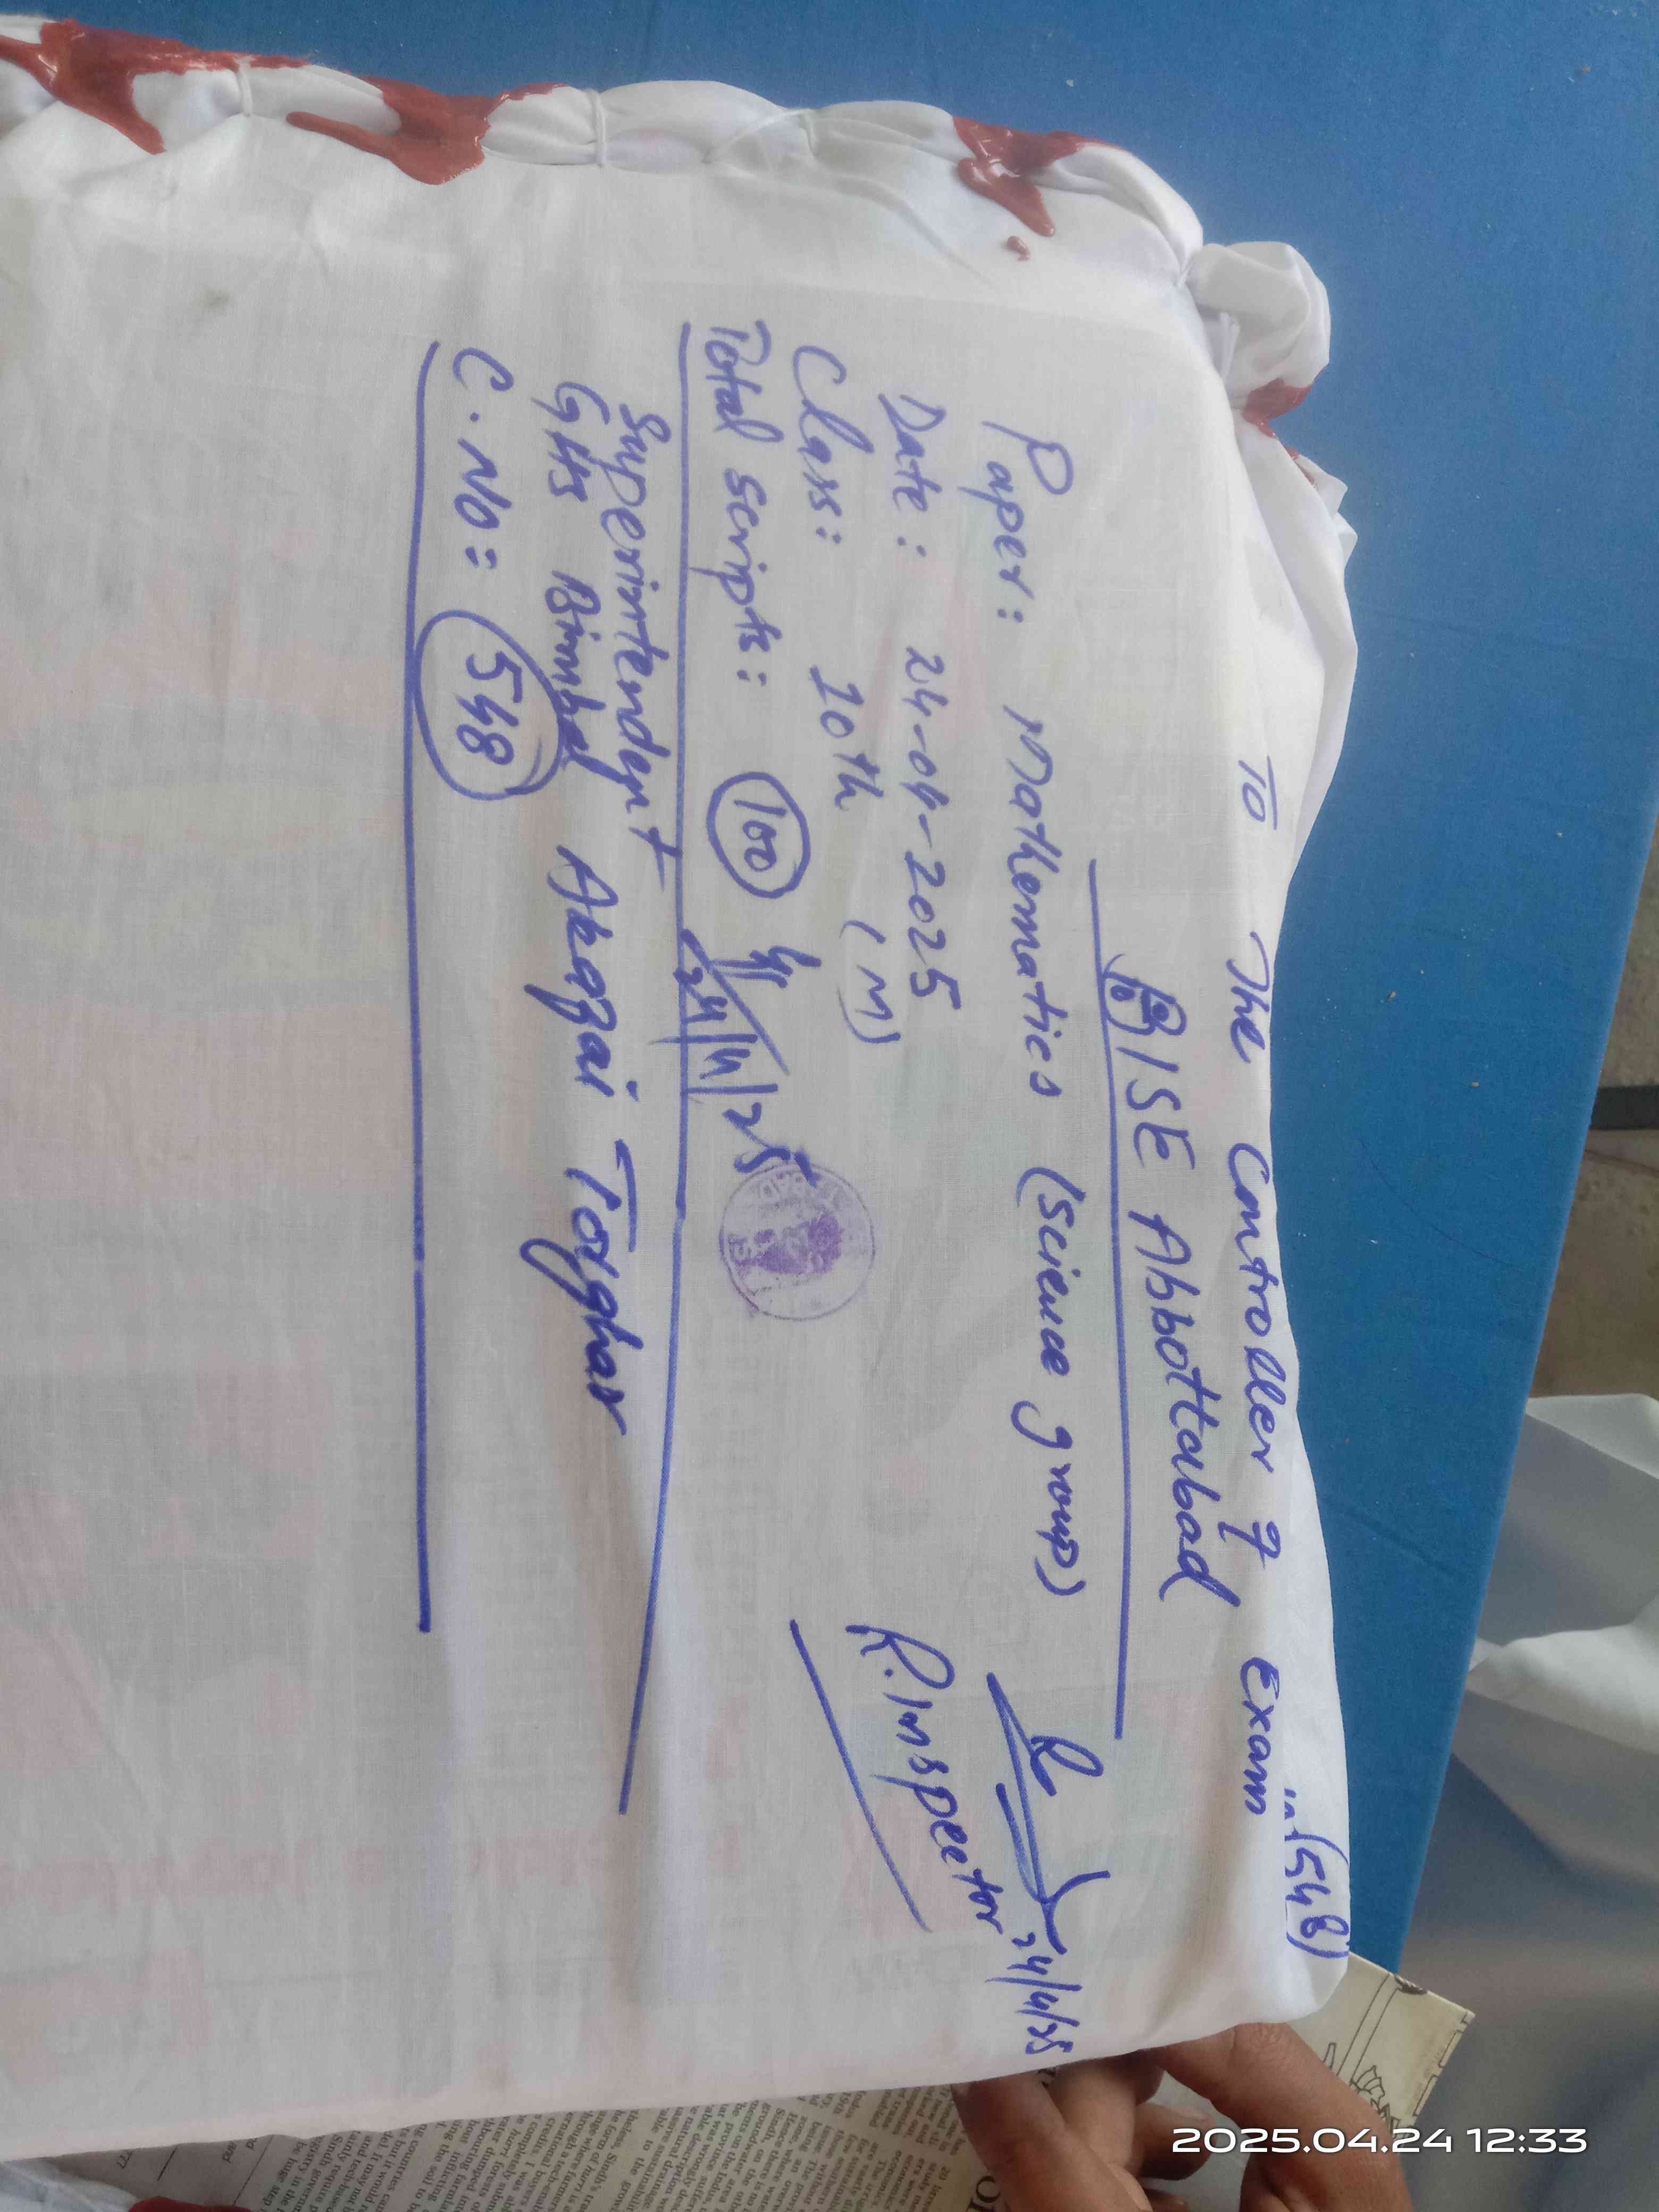 in (548)
To The Controller of Exam
BISE Abbottabad
Paper: Mathematics (Science group)
Date: 24-04-2025
Class: 10th (M)
Total scripts: 100
24/4/25
24/4/25
R.Inspector
Superintendent
GHS Bimbal Akazai Torghar
C.No: 548
2025.04.24 12:33